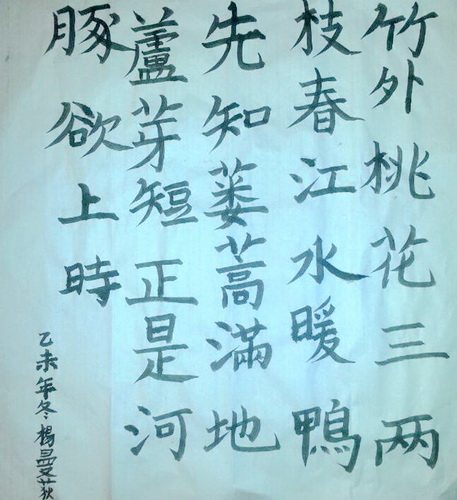 竹外桃花三两
枝春江水暖鴨
先知蒌蒿滿地
蘆芽短正是河
豚欲上時
乙未年冬楊曼荻